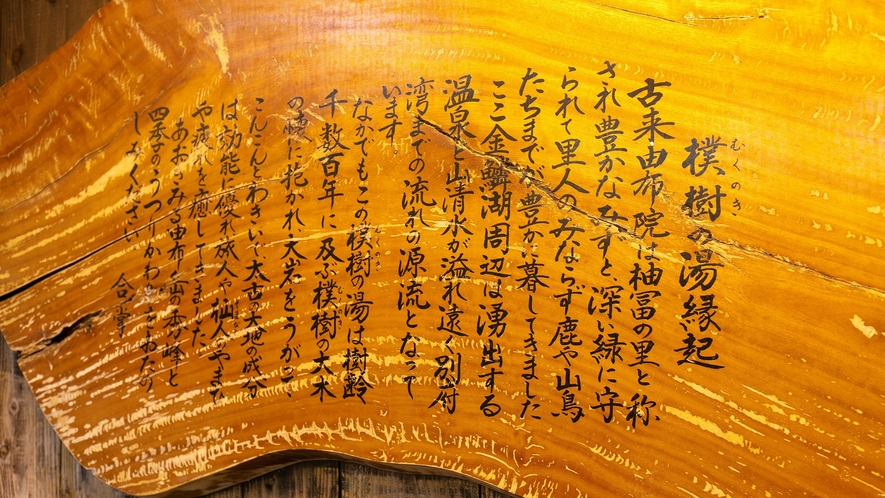 むくのき
樸樹の湯縁起
古来由布院は柚冨の里と称
され豊かなみずと、深い緑に守
られて里人のみならず鹿や山鳥
たちまでが豊かに暮してきました
ここ金鱗湖周辺は湧出する
温泉と山清水が溢れ遠く別府
湾までの流れの源流となって
います。
なかでもこの樸樹の湯は樹齢
千数百年に及ぶ樸樹の大木
の懐に抱かれ、大岩をうがって、
こんこんとわきいで太古の大地の成分
は効能に優れ旅人や仙人のやまひ
や疲れを癒してきました。
あおぎみる由布岳の峰と
四季のうつりかわりをおたの
しみください 合掌